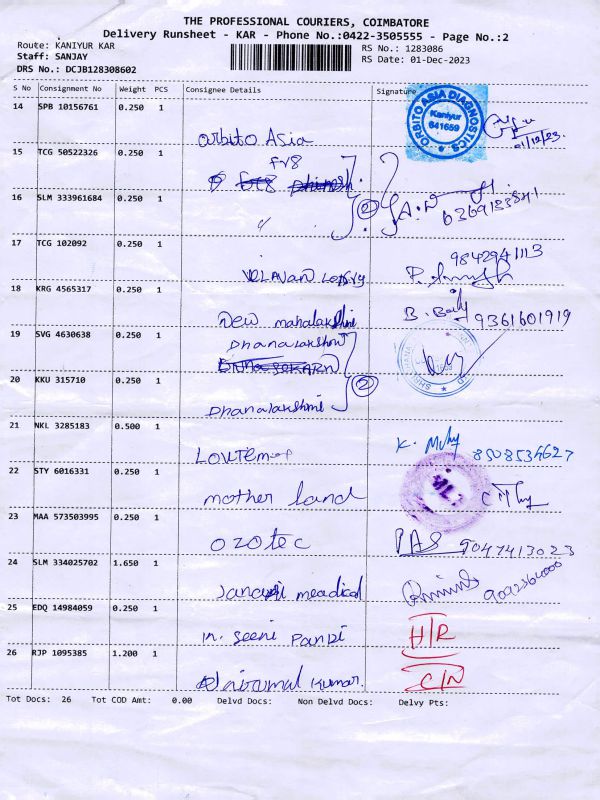 THE PROFESSIONAL COURIERS, COIMBATORE
Delivery Runsheet - KAR - Phone No.:0422-3505555 - Page No.:2
Route: KANIYUR KAR
Staff: SANJAY
DRS No.: DCJB128308602
RS No.: 1283086
RS Date: 01-Dec-2023
S No Consignment No Weight PCS Consignee Details Signature
14 SPB 10156761 0.250 1
orbito Asia
ORBITO ASIA DIAGNOSTICS
Kaniyur
641659
01/12/23
15 TCG 50522326 0.250 1
16 SLM 333961684 0.250 1
"
2
17 TCG 102092 0.250 1
VELAVAN
9842941113
18 KRG 4565317 0.250 1
New mahalakshmi
9361601919
19 SVG 4630638 0.250 1
Dhanalakshmi
20 KKU 315710 0.250 1
Dhanalakshmi
2
21 NKL 3285183 0.500 1
8508534627
22 STY 6016331 0.250 1
mother land
23 MAA 573503995 0.250 1
ozotec
9047413023
24 SLM 334025702 1.650 1
meadical
25 EDQ 14984059 0.250 1
m. Seeni Pandi
H/R
26 RJP 1095385 1.200 1
niramal kumar.
C/N
Tot Docs: 26 Tot COD Amt: 0.00 Delvd Docs: Non Delvd Docs: Delvy Pts: